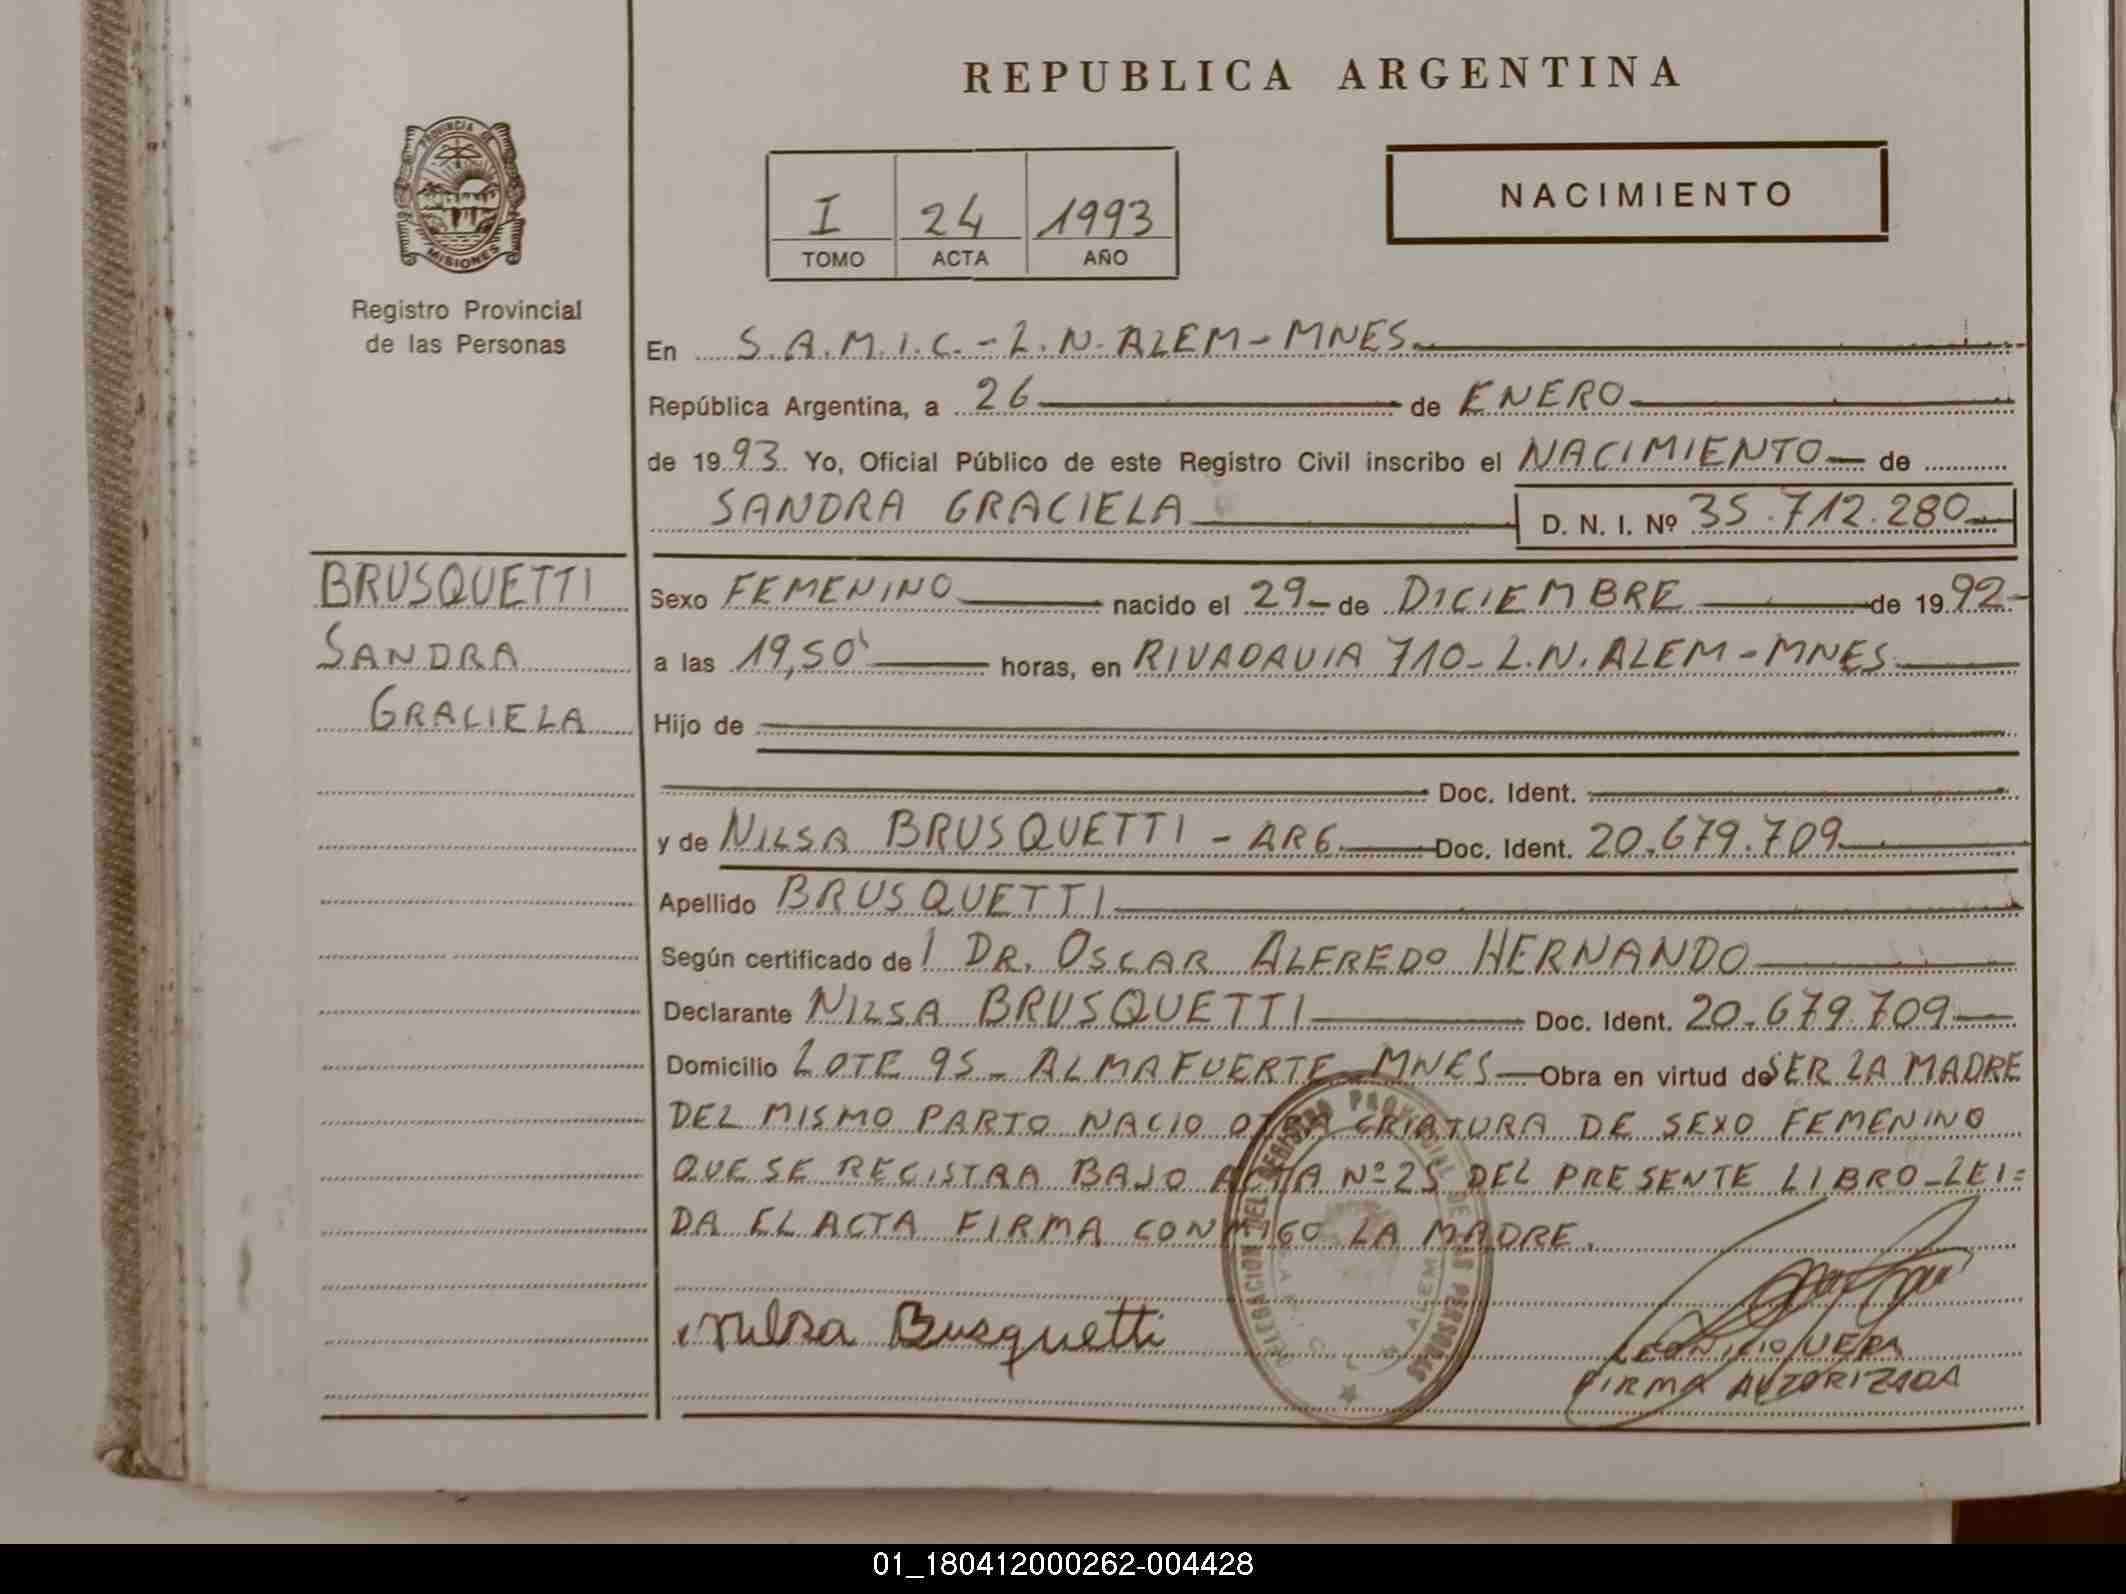 REPUBLICA ARGENTINA
PROVINCIA DE
MISIONES
Registro Provincial
de las Personas
I 24 1993
TOMO ACTA AÑO
NACIMIENTO
En S.A.M.I.C. - L.N. ALEM - MNES
República Argentina, a 26 de ENERO
de 1993. Yo, Oficial Público de este Registro Civil inscribo el NACIMIENTO de
SANDRA GRACIELA D. N. I. Nº 35.712.280
BRUSQUETTI
SANDRA
GRACIELA
Sexo FEMENINO nacido el 29 de DICIEMBRE de 1992
a las 19,50' horas, en RIVADAVIA 710 - L.N. ALEM - MNES
Hijo de
Doc. Ident.
y de NILSA BRUSQUETTI - ARG. Doc. Ident. 20.679.709
Apellido BRUSQUETTI
Según certificado de l DR. OSCAR ALFREDO HERNANDO
Declarante NILSA BRUSQUETTI Doc. Ident. 20.679.709
Domicilio LOTE 95 - ALMAFUERTE MNES Obra en virtud de SER LA MADRE
DEL MISMO PARTO NACIO OTRA CRIATURA DE SEXO FEMENINO
QUE SE REGISTRA BAJO ACTA Nº 25 DEL PRESENTE LIBRO - LEI=
DA EL ACTA FIRMA CONMIGO LA MADRE.
Nilsa Busquetti
DELEGACION DEL REGISTRO PROVINCIAL DE LAS PERSONAS
ALEM
LEONICIO VERA
FIRMA AUTORIZADA
01_180412000262-004428